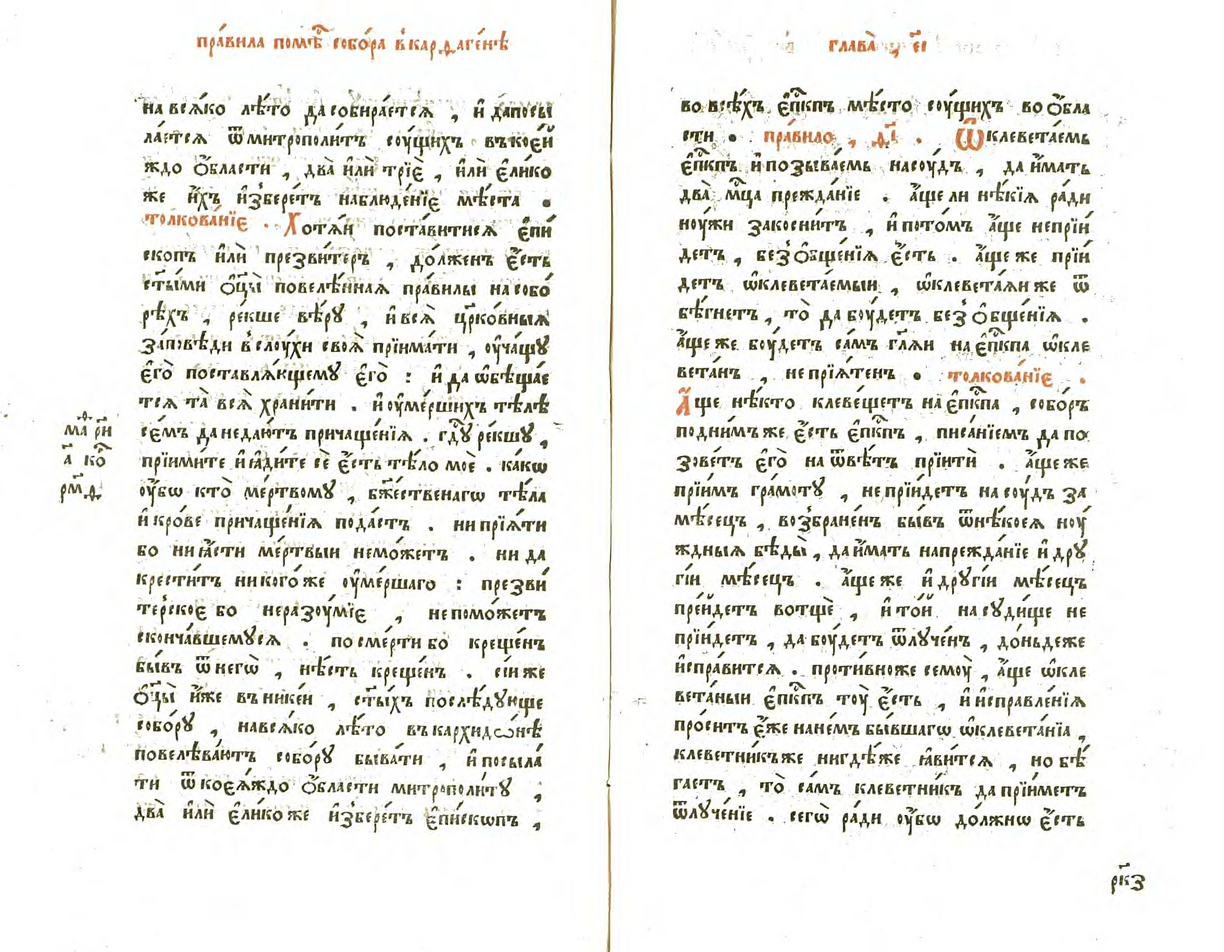 пра́вила помѣ́ⷭ собо́ра в̾карѳаге́нѣ
на всѧ́ко лѣ́то да собира́етсѧ , и҆ дапосы
ла́етсѧ ѿ митрополи́тъ соу́щихъ въ коє́и
ждо ѻ҆́бласти , два̀ и҆лѝ трїѐ , и҆лѝ є҆ли́ко
же и҆́хъ и҆збере́тъ наблюде́нїє мѣ́ста .
толкова́нїє . Хотѧ́и поста́витисѧ є҆пи
скопъ и҆лѝ презви́теръ , до́лженъ є҆́сть
ст҃ы́ми ѻ҆ц҃ы̀ повелѣ́нная пра́вилы на собо
рѣхъ , ре́кше вѣ́рꙋ , и҆ всѧ̀ цр҃ко́вныѧ
за́повѣди в̾слоу́хи своѧ̀ прїима́ти , оу҆ча́щꙋ
є҆го̀ поставлѧ́ющемꙋ є҆го̀ : и҆ да ѡ҆бѣща́е
тсѧ та̀ всѧ̀ храни́ти . и҆ оу҆ме́ршихъ тѣлѐ
се́мъ да недаю́тъ причаще́нїѧ . гдⷭ҇ꙋ ре́кшꙋ ,
прїимѝте и҆ ꙗ҆ди́те сѐ є҆́сть тѣ́ло моѐ . ка́кѡ
оу҆́бѡ кто̀ ме́ртвомꙋ , бж҃е́ственагѡ тѣ́ла
и҆ кро́ве причаще́нїѧ пода́стъ . ни прїѧ́ти
бо ни ꙗ҆́сти ме́ртвыи немо́жетъ . ни да
крести́тъ ни кого́же оу҆ме́ршаго : презви́
терское бо неразоу́мїє , не помо́жетъ
сконча́вшемꙋсѧ . по сме́рти бо креще́нъ
бы́въ ѿ негѡ̀ , нѣ́сть креще́н . сїи же
ѻ҆ц҃ы̀ и҆́же въ никеи , ст҃ы́хъ послѣ́дꙋюще
собо́рꙋ , на всѧ́ко лѣ́то въ кархидѡ́нѣ
повелѣва́ютъ собо́рꙋ быва́ти , и҆ посыла́
ти ѿ коеѧ́ждо ѻ҆́бласти митрополи́тꙋ ,
два̀ и҆лѝ є҆ли́ко же и҆збере́тъ є҆пи́скѡпъ ,
ма ри
а҃ ко
рм҃ѳ
глава̀ , є҃і
во всѣ́хъ є҆пⷭ҇кпъ мѣ́сто соу́щихъ во ѻ҆́бла
сти . пра́вило , д҃і . Ѡ҆клевета́емъ
є҆пⷭ҇кпъ и҆ позыва́емь на соу́дъ , да и҆́мать
два̀ мцⷭ҇а прежда́нїе . а҆́ще ли нѣ́кїѧ ра́ди
ноу́жи закосни́тъ , и҆ пото́мъ а҆́ще непрїи́
детъ , без̾ ѻ҆бще́нїѧ є҆́сть . а҆́ще же прїи́
детъ ѡ҆клевета́емыи , ѡ҆клевета́ѧи же ѿ
бѣ́гнетъ , то̀ да боу́детъ без̾ ѻ҆бще́нїѧ .
а҆́ще же боу́детъ са́мъ гл҃ѧи на є҆пⷭ҇кпа ѡ҆кле
вета́нъ , не прїѧ́тенъ . толкова́нїє .
А҆́ще нѣ́кто клеве́щетъ на є҆пⷭ҇кпа , собо́ръ
под̾ ни́мъ же є҆́сть є҆пⷭ҇кпъ , писа́нїемъ да по
зове́тъ є҆го̀ на ѿвѣ́тъ прїитѝ . а҆́ще же
прїи́мъ гра́мотꙋ , не прїи́детъ на соу́дъ за
мѣ́сецъ , возбране́н бы́въ ѿ нѣ́коеѧ ноу́
ждныѧ бѣды̀ , да и҆́мать на прежда́нїе и҆ дрꙋ
гі́и мѣ́сецъ . а҆́ще же и҆ дрꙋгі́и мѣ́сецъ
пре́йдетъ вотщѐ , и҆ то́й на сꙋди́ще не
прїи́детъ , да боу́детъ ѿлꙋче́нъ , до́ньдеже
и҆спра́витсѧ . проти́вно же семоу̀ , а҆́ще ѡ҆кле
вета́ныи є҆пⷭ҇кпъ тоу̀ є҆́сть , и҆ и҆справле́нїѧ
про́ситъ є҆́же на не́мъ бы́вшагѡ ѡ҆клевета́нїа ,
клеветни́къ же нигдѣ́же ꙗ҆ви́тсѧ , но бѣ́
гаетъ , то̀ са́мъ клеветни́къ да прїи́метъ
ѿлꙋче́нїе . сегѡ̀ ра́ди оу҆́бѡ до́лжнѡ є҆́сть
рк҃з